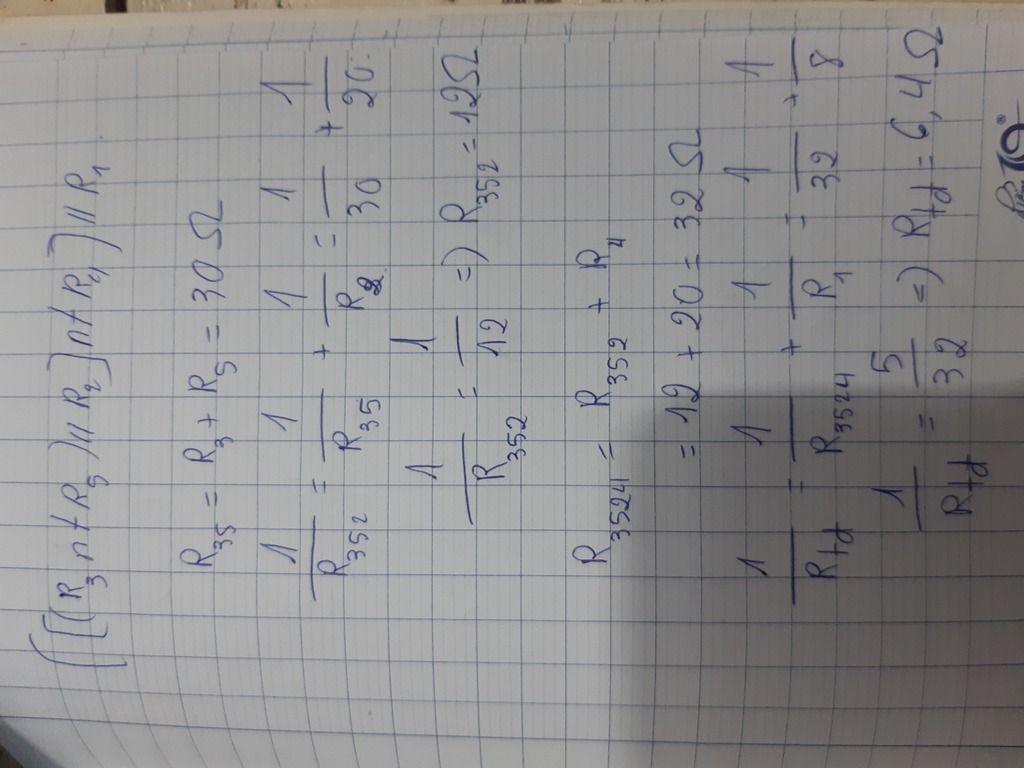 ([(R3 nt R5) // R2] nt R4) // R1
R35 = R3 + R5 = 30 Ω
1/R352 = 1/R35 + 1/R2 = 1/30 + 1/20
1/R352 = 1/12 => R352 = 12Ω
R3524 = R352 + R4
= 12 + 20 = 32 Ω
1/Rtd = 1/R3524 + 1/R1 = 1/32 + 1/8
1/Rtd = 5/32 => Rtd = 6,4 Ω